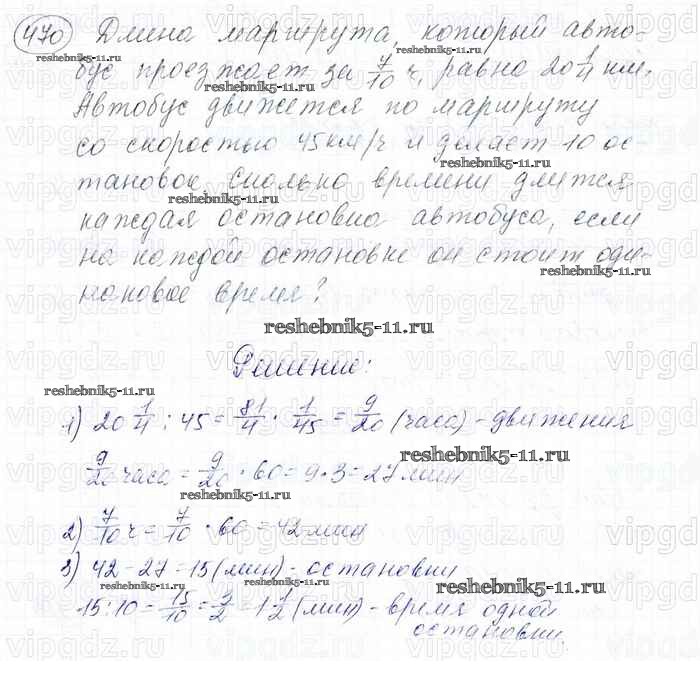 470 Длина маршрута, который авто-
бус проезжает за 7/10 ч, равна 20 1/4 км.
Автобус движется по маршруту
со скоростью 45 км/ч и делает 10 ос-
тановок. Сколько времени длится
каждая остановка автобуса, если
на каждой остановке он стоит оди-
наковое время?
reshebnik5-11.ru
Решение:
1) 20 1/4 : 45 = 81/4 · 1/45 = 9/20 (часа) - движения
9/20 часа = 9/20 · 60 = 9 · 3 = 27 мин
2) 7/10 ч = 7/10 · 60 = 42 мин
3) 42 - 27 = 15 (мин) - остановки
15 : 10 = 15/10 = 3/2 = 1 1/2 (мин) - время одной
остановки.